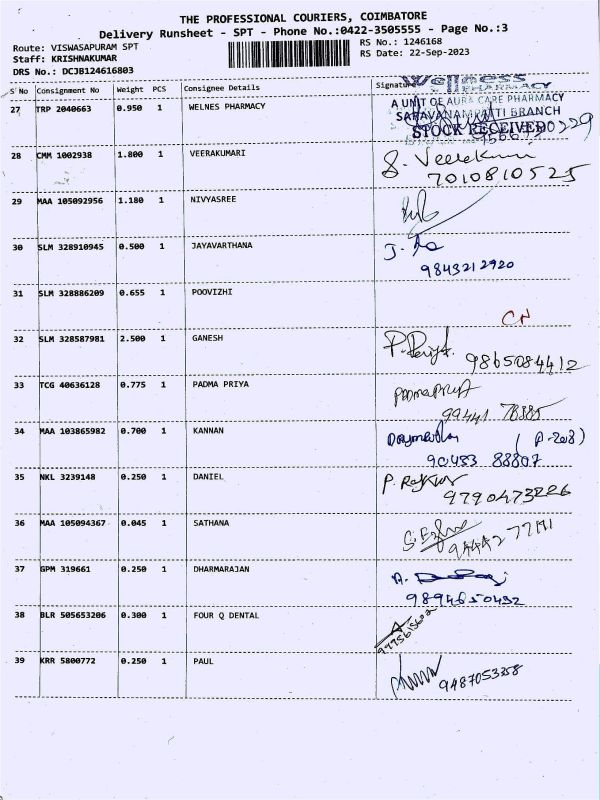 THE PROFESSIONAL COURIERS, COIMBATORE
Delivery Runsheet - SPT - Phone No.:0422-3505555 - Page No.:3
Route: VISWASAPURAM SPT
RS No.: 1246168
Staff: KRISHNAKUMAR
RS Date: 22-Sep-2023
DRS No.: DCJB124616803
S No Consignment No Weight PCS Consignee Details Signature
Wellness
PHARMACY
27 TRP 2040663 0.950 1 WELNES PHARMACY
A UNIT OF AURA CARE PHARMACY
SARAVANAMPATI BRANCH
STOCK RECEIVED
28 CMM 1002938 1.800 1 VEERAKUMARI
7010810525
29 MAA 105092956 1.180 1 NIVYASREE
30 SLM 328910945 0.500 1 JAYAVARTHANA
9843212920
31 SLM 328886209 0.655 1 POOVIZHI
CN
32 SLM 328587981 2.500 1 GANESH
9865084412
33 TCG 40636128 0.775 1 PADMA PRIYA
99441 78885
34 MAA 103865982 0.700 1 KANNAN
90433 88807
35 NKL 3239148 0.250 1 DANIEL
9790473226
36 MAA 105094367 0.045 1 SATHANA
37 GPM 319661 0.250 1 DHARMARAJAN
9894650432
38 BLR 505653206 0.300 1 FOUR Q DENTAL
9775615602
39 KRR 5800772 0.250 1 PAUL
9487053358